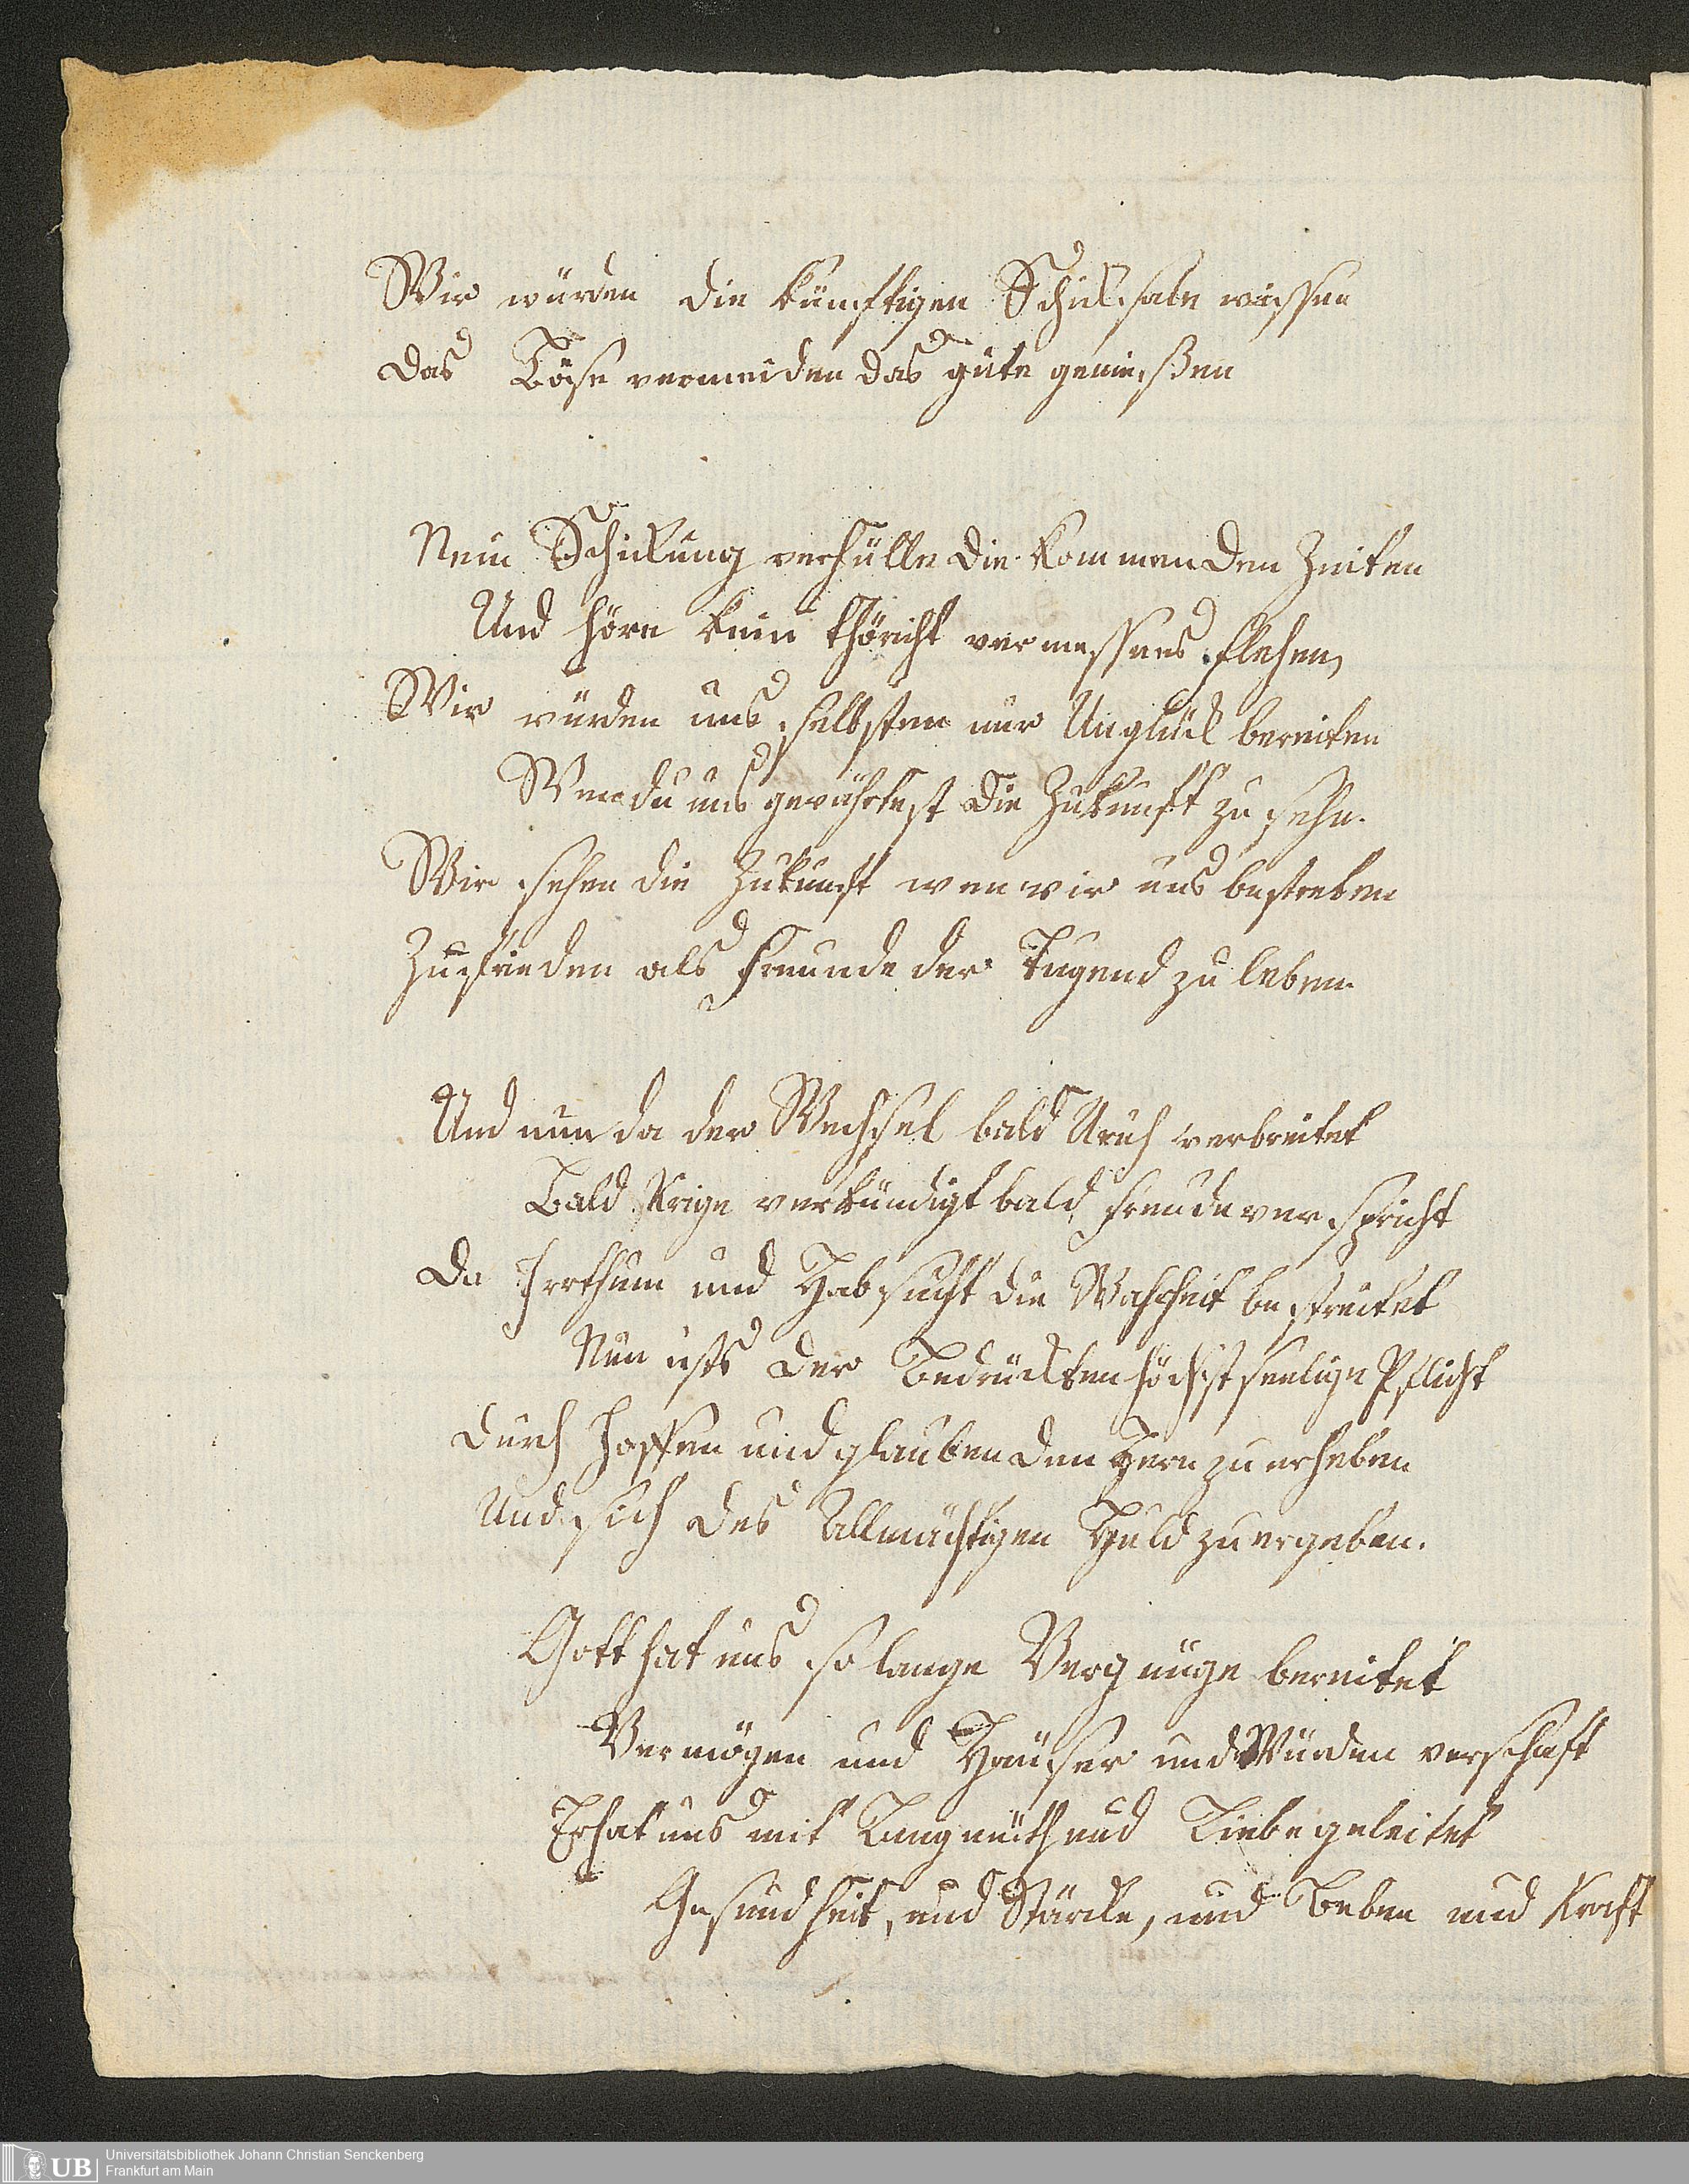 Wir würden die künftigen Schiksale wissen
das Böse vermeiden das gute genießen
Nein Schikung verhülle die kommenden Zeiten
Und höre kein thöricht vermessnes flehen,
Wir würden uns selbsten nur Unglük bereiten
Wen du uns gewährtest die Zukunft zu sehn.
Wir sehen die Zukunft wen wir uns bestreben
Zufrieden als Freunde der Tugend zu leben.
Und nun da der Wechsel bald Ruh verbreitet
Bald Krige verkündigt bald Freude verspricht
Da Irrthum und Habsucht die Wahrheit bestreitet
Nun ists der Bedrückten höchstseelige Pflicht
durch Hoffen und glauben den Hern zu erheben
Und sich des Allmächtigen Huld zu ergeben.
Gott hat uns so lange Vergnüge bereitet
Vermögen und Häuser und Würden verschaft
Er hat uns mit Langmuth und Liebe geleitet
Gesundheit, und Stärcke, und Leben und Kraft
UB
Universitätsbibliothek Johann Christian Senckenberg
Frankfurt am Main